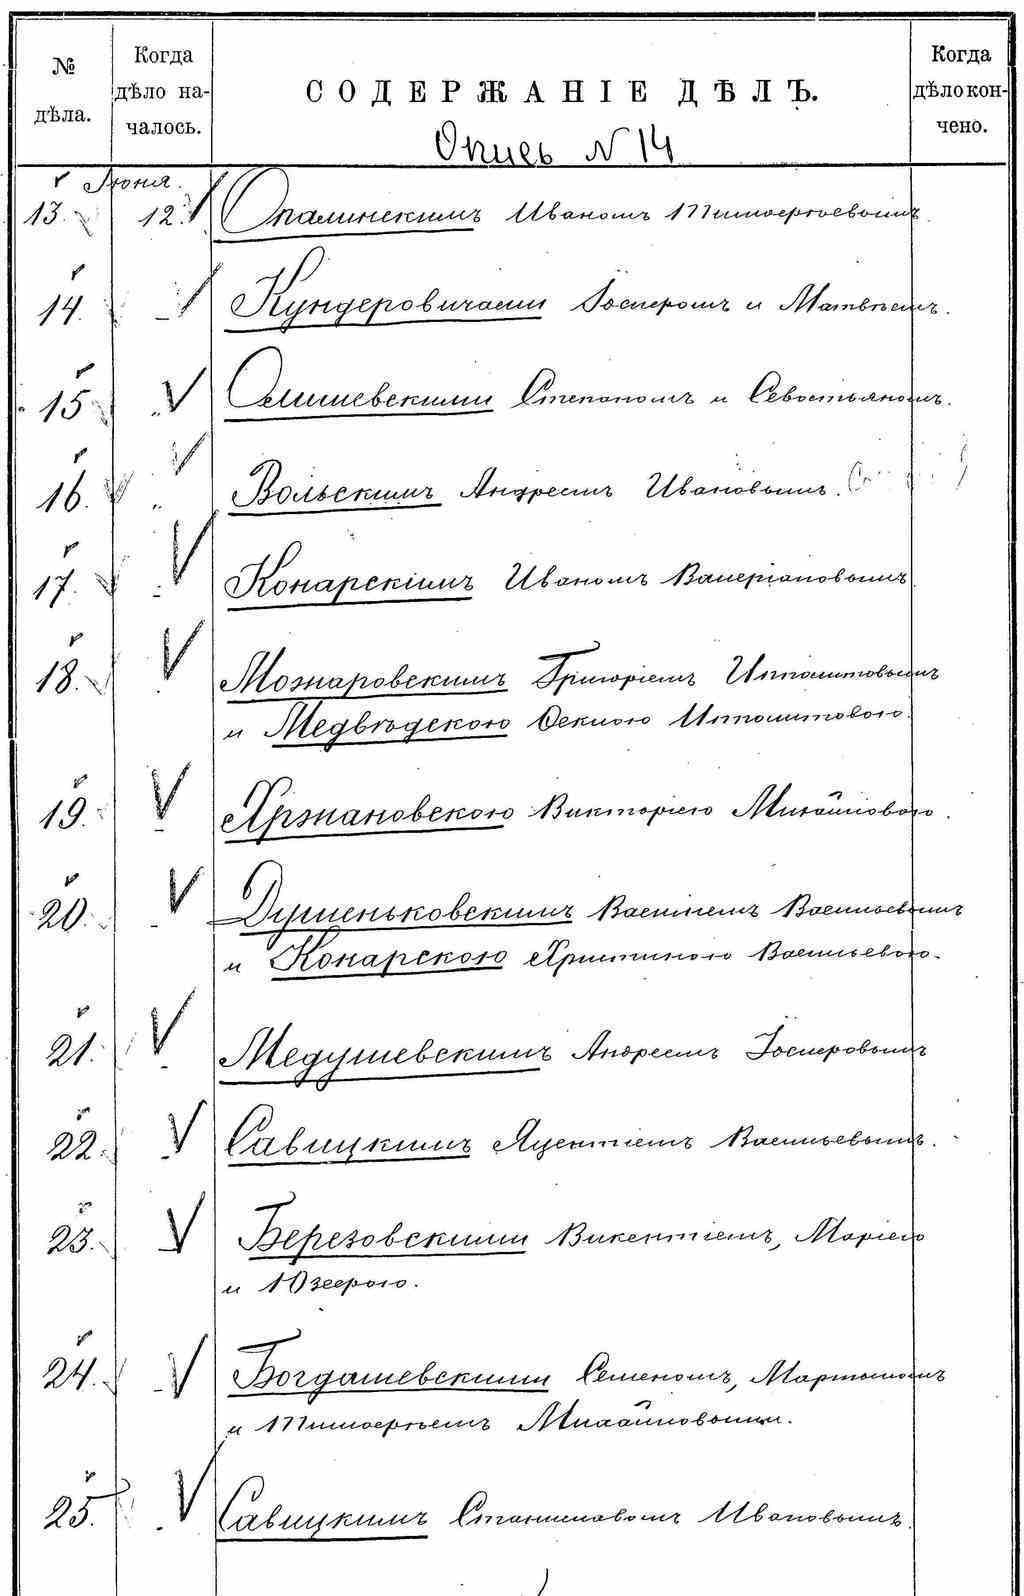 № дѣла.
Когда дѣло началось.
СОДЕРЖАНІЕ ДѢЛЪ.
Когда дѣло кончено.
Опись N 14
Іюня.
13. 12. Опалинскимъ Иваномъ Тимофеевымъ.
14. " Кундеровичами Іосифомъ и Матвѣемъ.
15 " Олишевскими Степаномъ и Севостьяномъ.
16. " Вольскимъ Андреемъ Ивановымъ.
17. " Конарскімъ Иваномъ Валеріановымъ
18. " Можаровскимъ Григоріемъ Ипполитовымъ
и Медвѣдскою Феклою Ипполитовою.
19. " Хржановскою Викторіею Михайловою.
20. " Душеньковскимъ Василіемъ Васильевымъ
и Конарскою Христиною Васильевою.
21. " Медушевскимъ Андреемъ Іосифовымъ
22. " Савицкимъ Яцентіемъ Васильевымъ.
23. " Березовскими Викентіемъ, Маріею
и Юзефою.
24. " Богдашевскими Семеномъ, Мартыномъ
и Тимофеемъ Михайловыми.
25. " Савицкимъ Станиславомъ Ивановымъ.